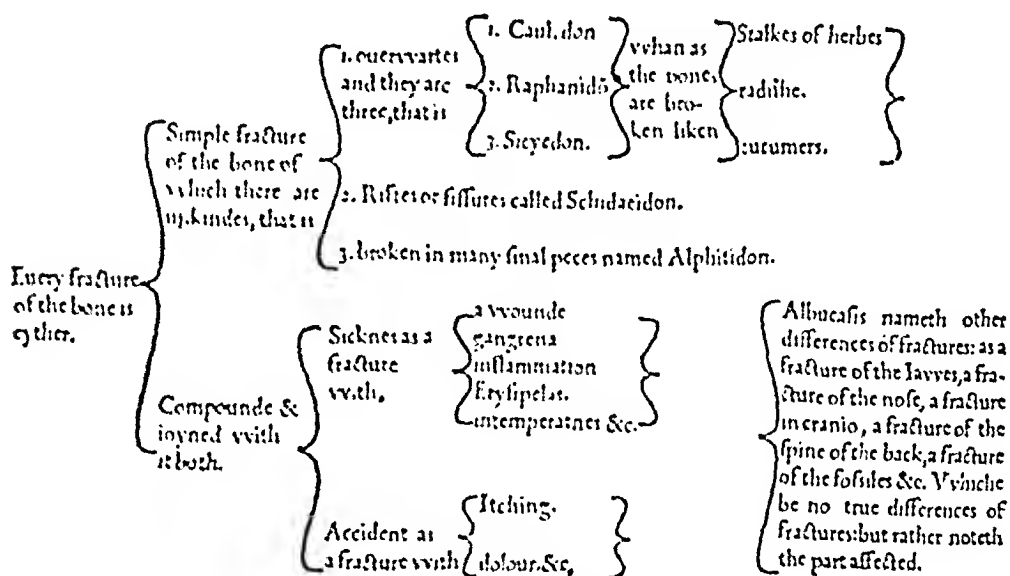 Euery fracture
of the bone is
eyther.
Simple fracture
of the bone of
vvhich there are
iij. kindes, that is
1. ouervvartes
and they are
three, that is
1. Caulidon
2. Raphanidō
3. Sicyedon.
vvhan as
the bones
are bro-
ken liken
Stalkes of herbes
radishe.
cucumers.
2. Riftes or fissures called Schidaeidon.
3. broken in many smal peces named Alphitidon.
Compounde &
ioyned vvith
it both.
Sicknes as a
fracture
vvith,
a vvounde
gangrena
inflammation
Erysipelas.
intemperatnes &c.
Accident as
a fracture vvith
Itching.
dolour, &c,
Albucasis nameth other
differences of fractures: as a
fracture of the Iavves, a fra-
cture of the nose, a fracture
in cranio, a fracture of the
spine of the back, a fracture
of the fosules &c. VVhiche
be no true differences of
fractures: but rather noteth
the part affected.